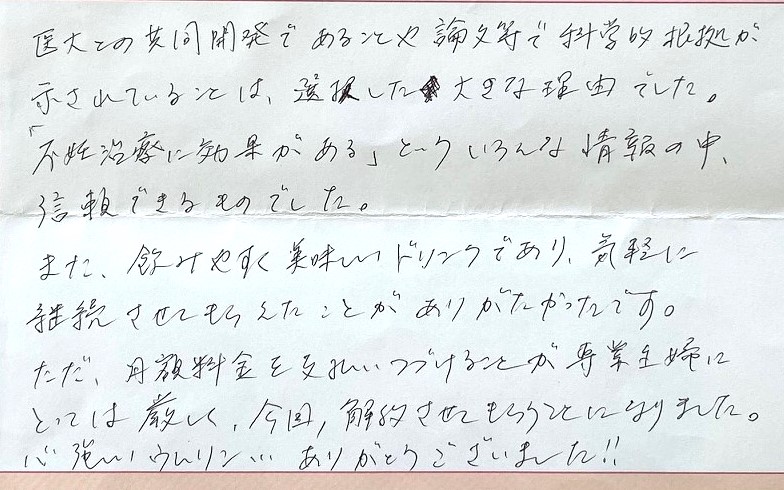 医大との共同開発であることや論文等で科学的根拠が
示されていることは、選択した大きな理由でした。
「不妊治療に効果がある」といういろんな情報の中、
信頼できるものでした。
また、飲みやすく美味しいドリンクであり、気軽に
継続させてもらえたことがありがたかったです。
ただ、月額料金を支払いつづけることが専業主婦に
とっては厳しく、今回、解約させてもらうことになりました。
心強い…ありがとうございました!!